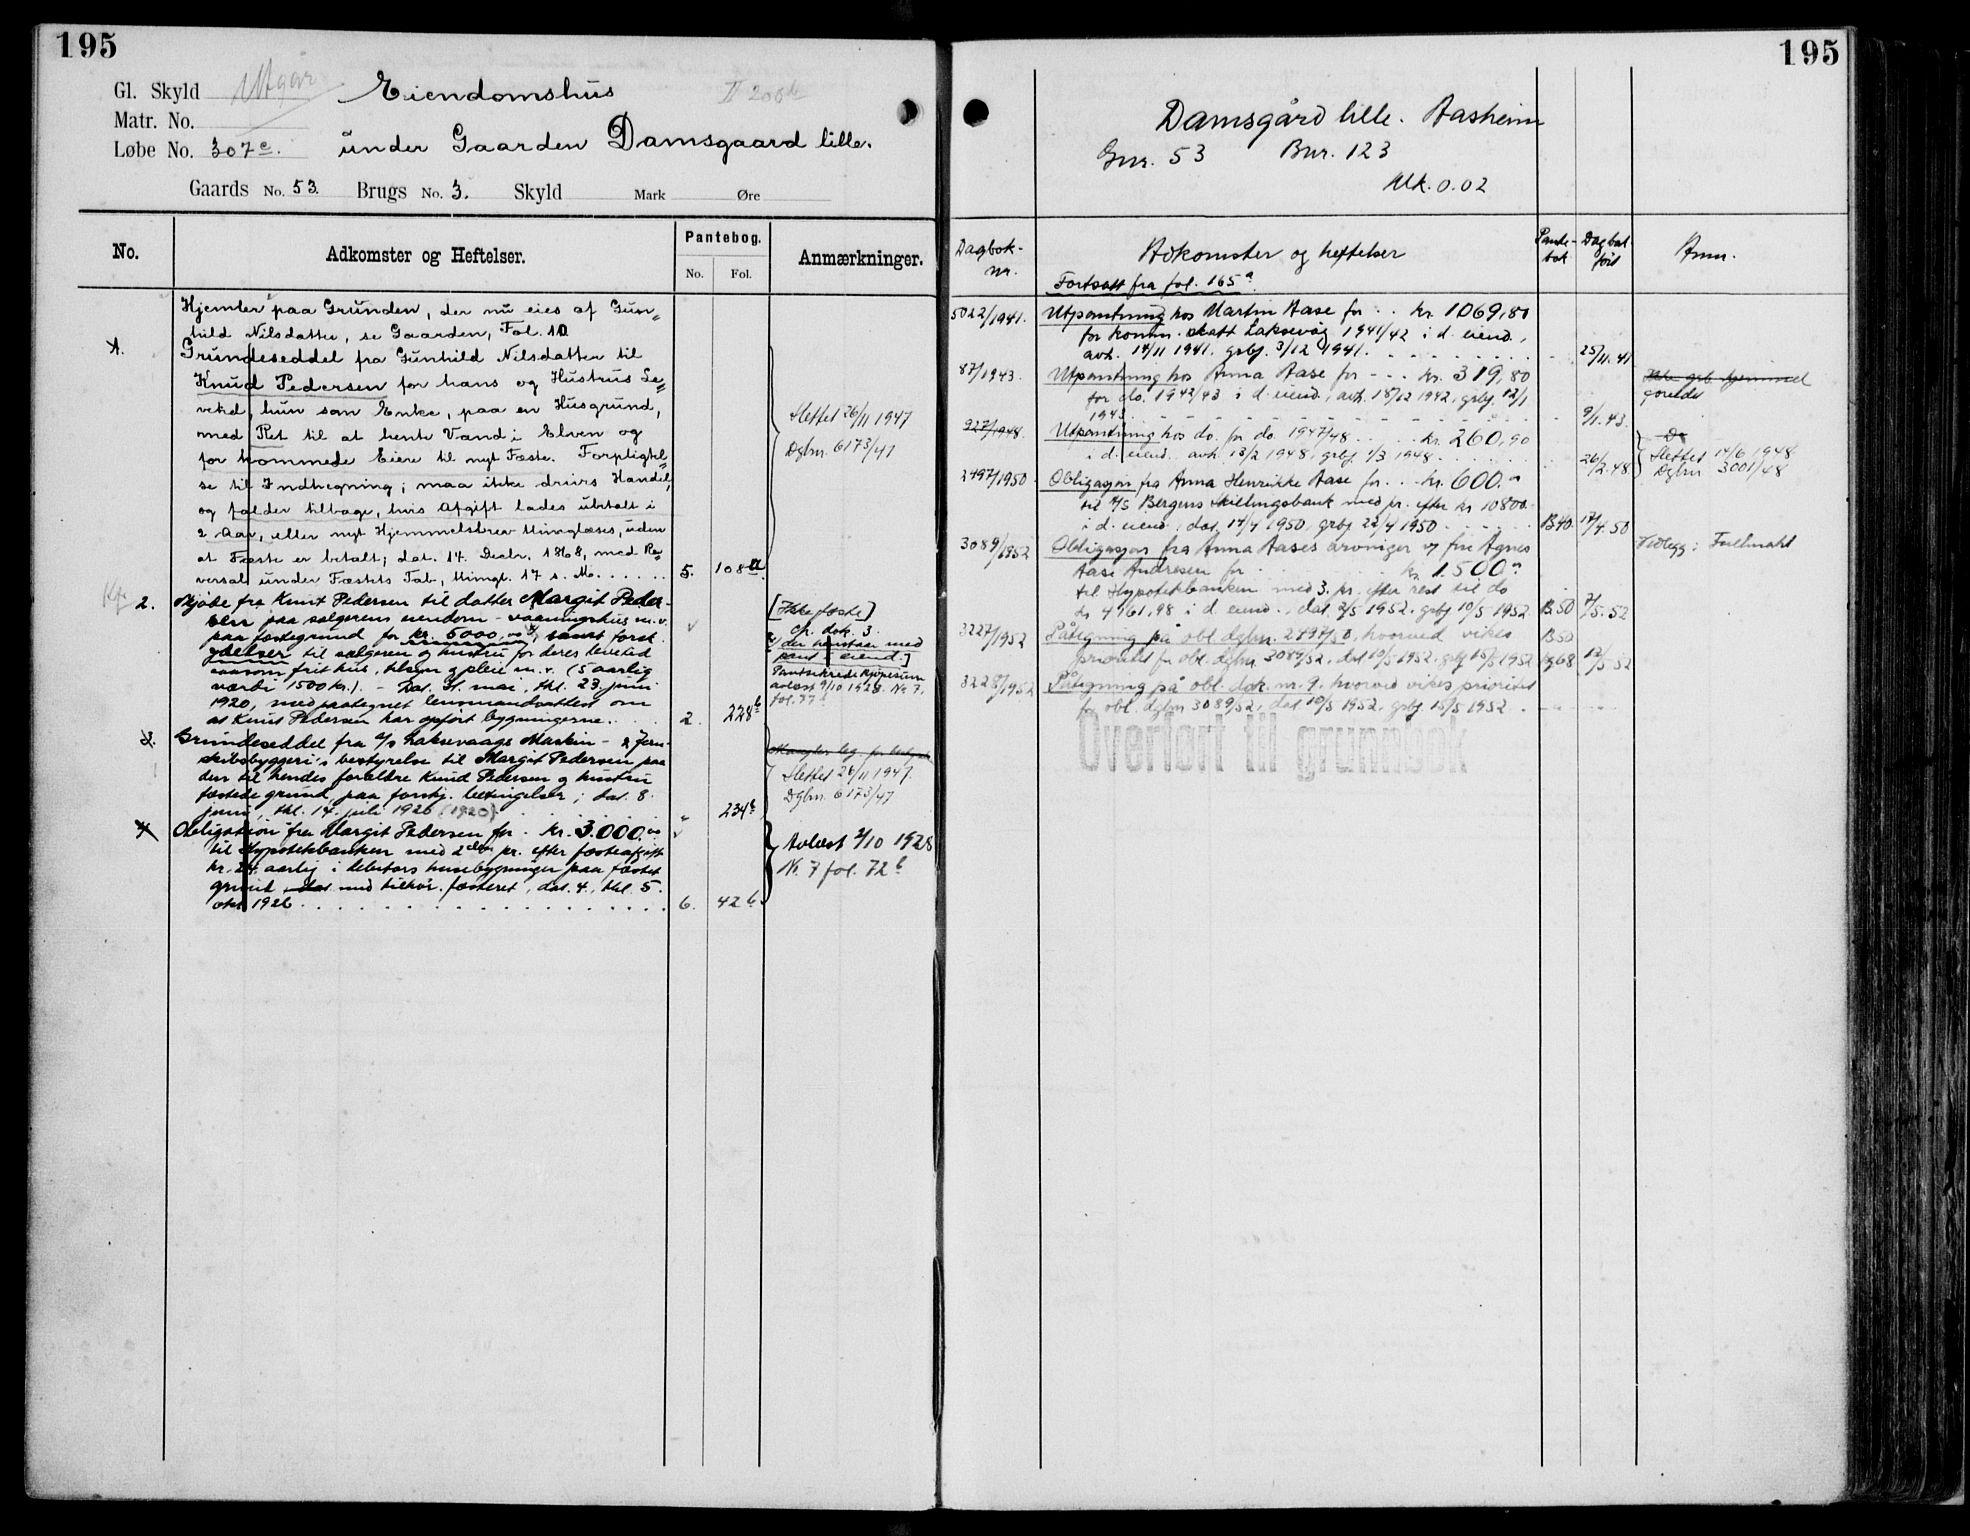 195
Gl. Skyld Utgår Eiendomshus II 200b
Matr. No.
Løbe No. 307c. under Gaarden Damsgaard lille.
Gaards No. 53. Brugs No. 3. Skyld Mark Øre
No. Adkomster og Heftelser. Pantebog. No. Fol. Anmærkninger.
Hjemler paa Grunden, der nu eies af Gun=
hild Nilsdatter, se Gaarden, Fol. 10
1. Grundeseddel fra Gunhild Nilsdatter til
Knud Pedersen for hans og Hustrus Le=
vetid, hun som Enke, paa en Husgrund,
med Ret til at hente Vand i Elven og
for kommede Eiere til nyt Fæste. Forpligtel=
se til Indhegning; maa ikke drives Handel,
og falder tilbage, hvis Afgift lades ubetalt i
2 Aar, eller nyt Hjemmelsbrev thinglæses, uden
at Fæste er betalt; dat. 14. Decbr. 1868, med Re=
versal under Fæstets Tab, thingl. 17 s. M. . . . . . 5. 108a.
Slettet 26/11 1947
Dgbnr. 6173/47
2. Skjøte fra Knut Pedersen til datter Margit Peder-
sen paa sælgerens eiendom - vaaningshus m.v.
paa fæstegrund for kr. 5000,00, samt forsk.
ydelser til sælgeren og hustru for deres levetid
saasom frit hus, tilsyn og pleie m.v. (5 aarlig
værdi 1500 kr.). - Dat. 31. mai, thl. 23. juni
1920, med paategnet lensmandsattest om
at Knut Pedersen har opført bygningerne. . . . 2. 228b
[Ikke fæste]
cfr. dok. 3.
Pantsikrede kjøpesum
avlæst 9/10 1928. No. 7,
fol. 77
3. Grundeseddel fra a/s Laksevaags Maskin- & Jern-
skibsbyggeri's bestyrelse til Margit Pedersen paa
den til hendes forældre Knud Pedersen og hustru
fæstede grund, paa forskj. betingelser; dat. 8.
juni, thl. 14. juli 1926 (1920) " 234b
Slettet 26/11 1947.
Dgbnr. 6173/47
4. Obligation fra Margit Pedersen for . kr. 3.000.00
til Hypotekbanken med 2den pr. efter fæsteafgift
kr. 24. aarlig i debitors husebygninger paa fæstet
grund med tilhør. fæsteret, dat. 4., thl. 5.
okt. 1926 . . . . . . . . . . . . . . . . . 6. 42b
Avlæst 2/10 1928
No. 7 fol. 72b
195
Damsgård lille. Aasheim
Gnr. 53 Bnr. 123
Mk. 0.02
Dagbok-nr. Adkomster og heftelser Pante-bok Dagbok ført Anm.
Fortsatt fra fol. 165a.
5022/1941. Utpantning hos Martin Aase for . . kr. 1069,80
for komm. skatt Laksevåg 1941/42 i d. eiend.,
avh. 14/11 1941. grbf. 3/12 1941. . . . . . . . . . - 25/11.41
87/1943. Utpantning hos Anna Aase for - - . kr. 319,80
for do. 1942/43 i d. eiend., avh. 18/12 1942, grbf. 12/1
1943. - - - - - - - - 9/1.43.
927/1948. Utpantning hos do. for do. 1947/48 . . . . kr. 260,90
i d. eiend. avh. 13/2 1948, grbf. 1/3 1948. . . . . . . 26/2.48
Do
Slettet 14/6 1948
Dgbnr. 3001/48
2497/1950 Obligasjon fra Anna Henrikke Aase for . . kr. 600.00
til A/S Bergens Skillingsbank med pr. efter kr 10800.-
i d. eiend., dat. 14/4 1950, grbf. 22/4 1950 . . . . . . B40. 17/4.50
3089/1952 Obligasjon fra Anna Aases arvinger v/ fru Agnes
Aase Andresen for . . . . . . . . kr 1.500.00
til Hypotekbanken med 3. pr. efter rest til do
kr 4761,98 i d. eiend., dat 2/5 1952. grbf 10/5 1952 B50 7/5.52
Vedlegg: Fullmakt
3227/1952 Påtegning på obl. dgbnr. 2497/50, hvorved vikes B50
prioritet for obl. dgbnr 3089/52, dat 10/5 1952. grbf 15/5 1952 bg68 12/5 52
3228/1952 Påtegning på obl. dok. nr. 9. hvorved vikes prioritet
for obl. dgbnr 3089/52, dat 10/5 1952, grbf. 15/5 1952 . - " - - - -
Overført til grunnbok